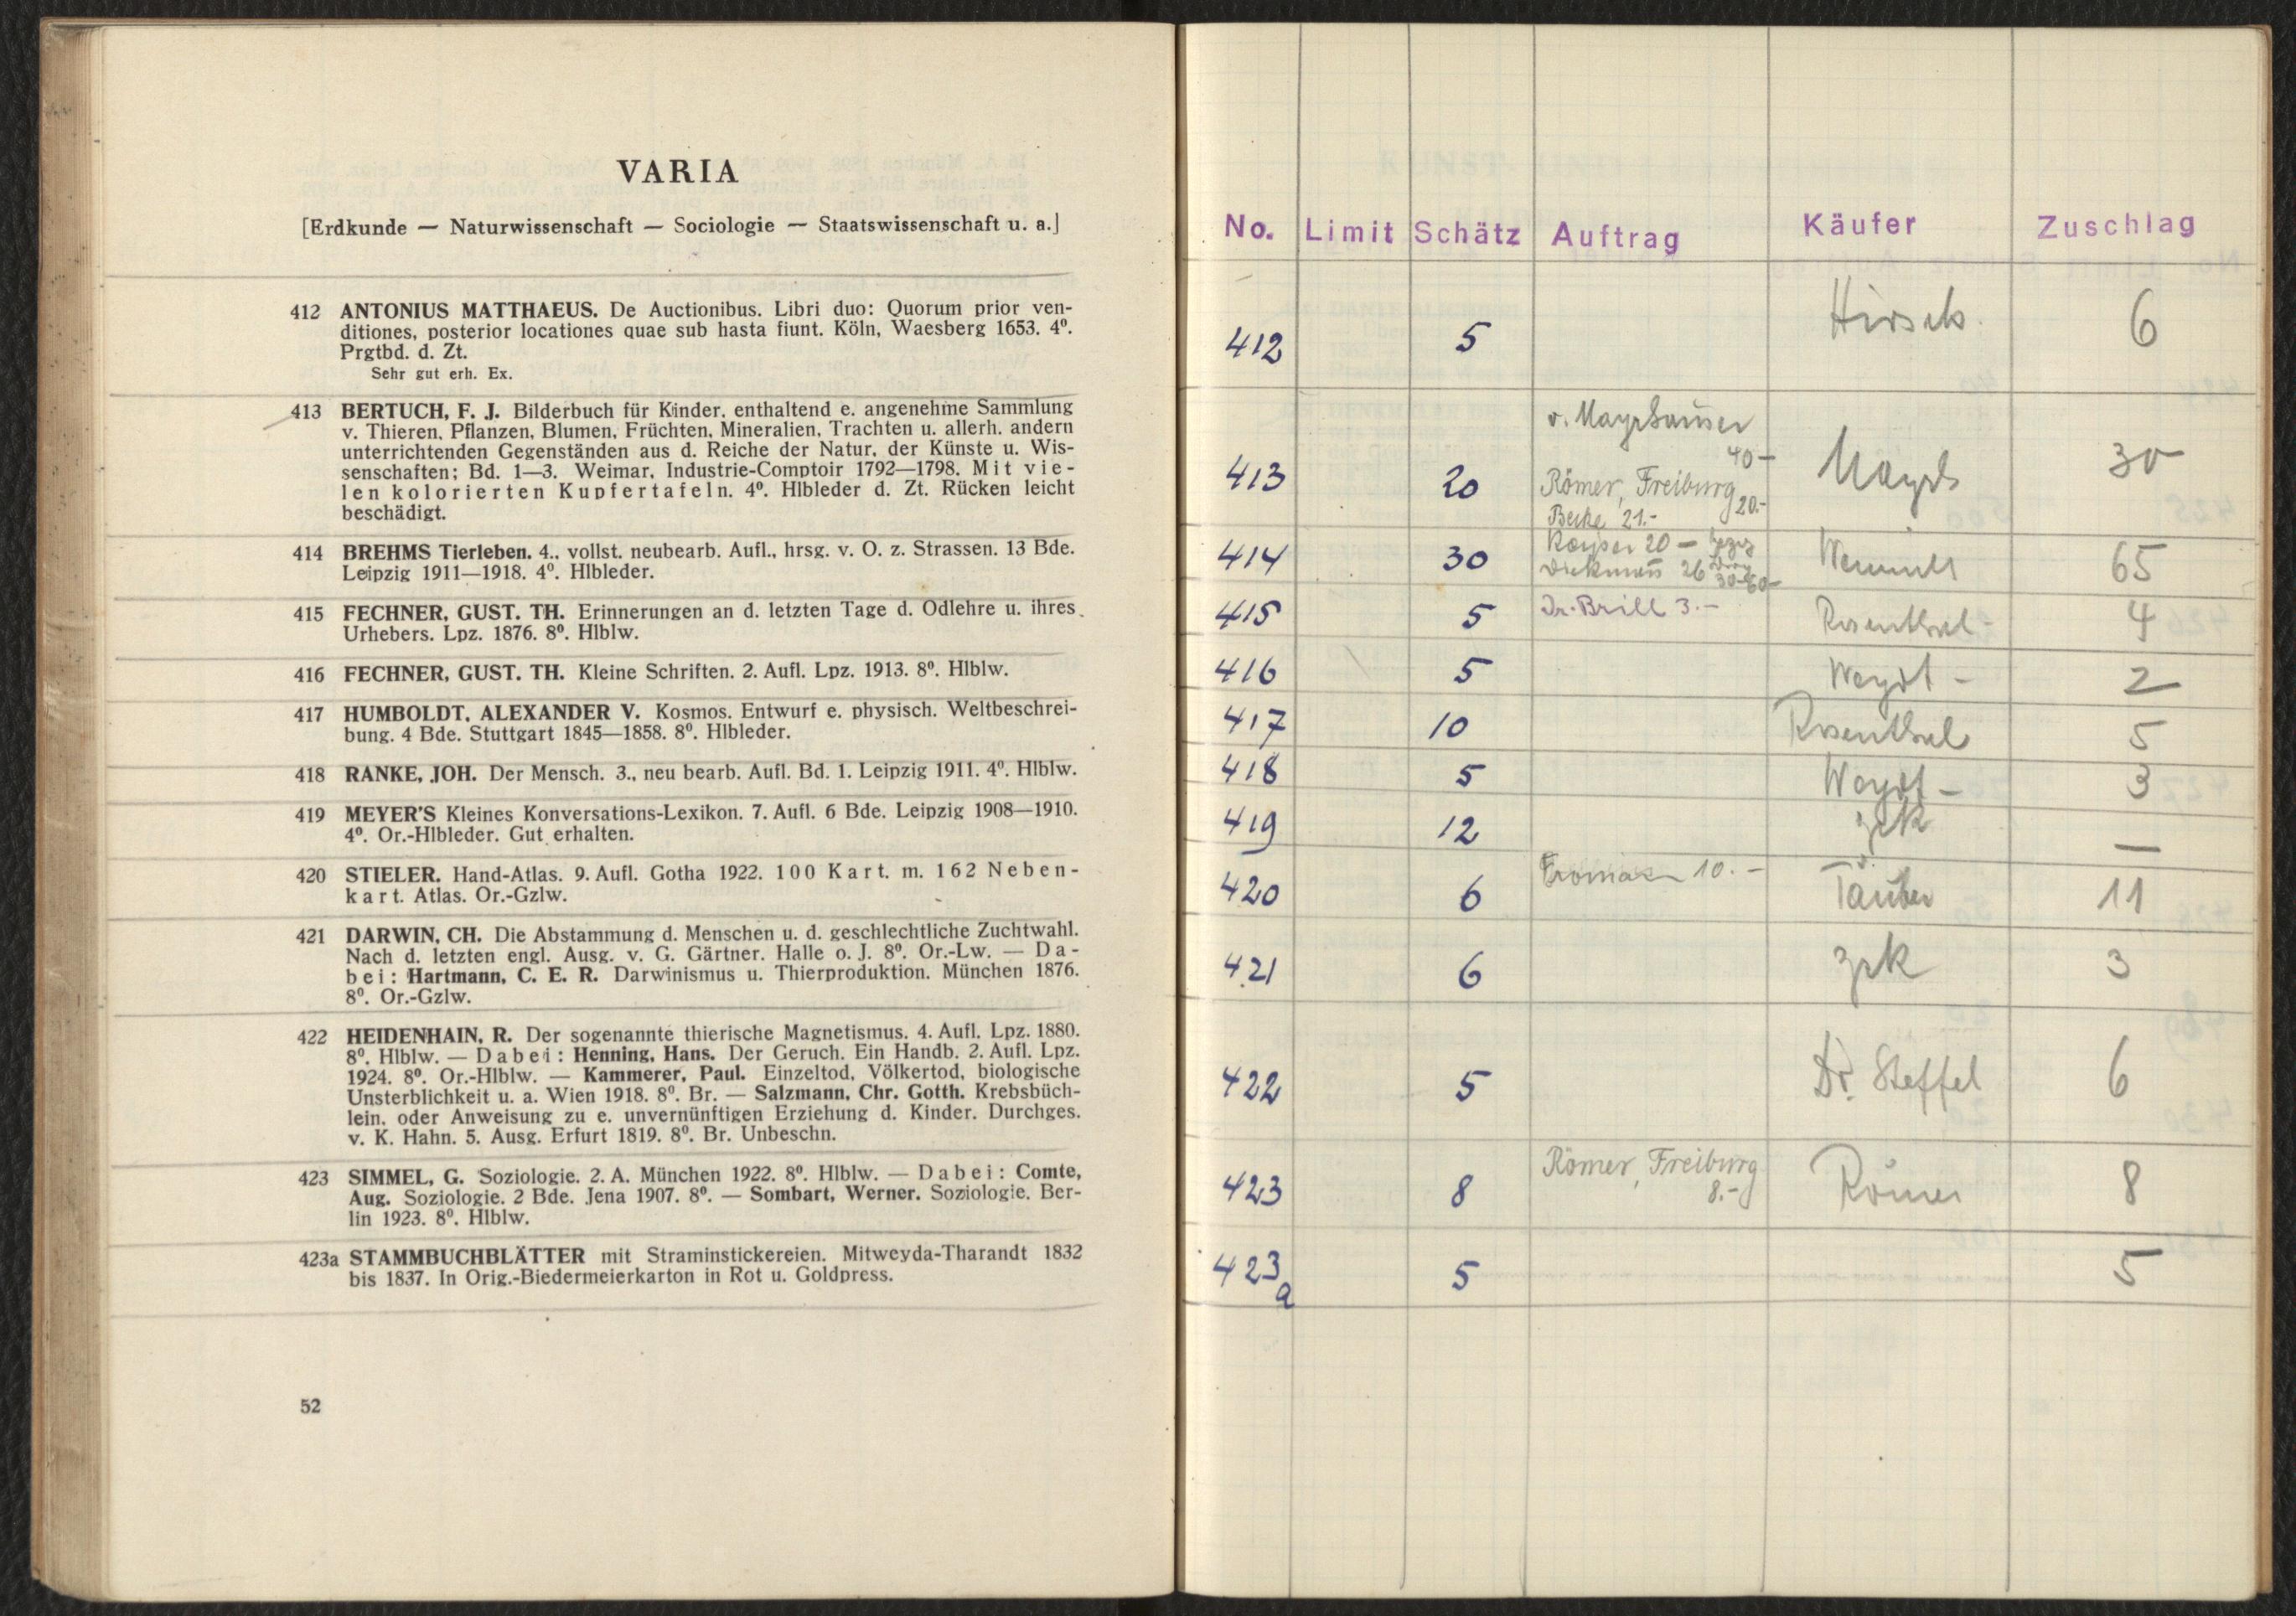 VARIA
[Erdkunde — Naturwissenschaft — Sociologie — Staatswissenschaft u. a.]
412 ANTONIUS MATTHAEUS. De Auctionibus. Libri duo: Quorum prior ven-
ditiones, posterior locationes quae sub hasta fiunt. Köln, Waesberg 1653. 4⁰.
Prgtbd. d. Zt.
Sehr gut erh. Ex.
413 BERTUCH, F. J. Bilderbuch für Kinder, enthaltend e. angenehme Sammlung
v. Thieren, Pflanzen, Blumen, Früchten, Mineralien, Trachten u. allerh. andern
unterrichtenden Gegenständen aus d. Reiche der Natur, der Künste u. Wis-
senschaften; Bd. 1—3. Weimar, Industrie-Comptoir 1792—1798. Mit vie-
len kolorierten Kupfertafeln. 4⁰. Hlbleder d. Zt. Rücken leicht
beschädigt.
414 BREHMS Tierleben. 4., vollst. neubearb. Aufl., hrsg. v. O. z. Strassen. 13 Bde.
Leipzig 1911—1918. 4⁰. Hlbleder.
415 FECHNER, GUST. TH. Erinnerungen an d. letzten Tage d. Odlehre u. ihres
Urhebers. Lpz. 1876. 8⁰. Hlblw.
416 FECHNER, GUST. TH. Kleine Schriften. 2. Aufl. Lpz. 1913. 8⁰. Hlblw.
417 HUMBOLDT, ALEXANDER V. Kosmos. Entwurf e. physisch. Weltbeschrei-
bung. 4 Bde. Stuttgart 1845—1858. 8⁰. Hlbleder.
418 RANKE, JOH. Der Mensch. 3., neu bearb. Aufl. Bd. 1. Leipzig 1911. 4⁰. Hlblw.
419 MEYER'S Kleines Konversations-Lexikon. 7. Aufl. 6 Bde. Leipzig 1908—1910.
4⁰. Or.-Hlbleder. Gut erhalten.
420 STIELER. Hand-Atlas. 9. Aufl. Gotha 1922. 100 Kart. m. 162 Neben-
kart. Atlas. Or.-Gzlw.
421 DARWIN, CH. Die Abstammung d. Menschen u. d. geschlechtliche Zuchtwahl.
Nach d. letzten engl. Ausg. v. G. Gärtner. Halle o. J. 8⁰. Or.-Lw. — Da-
bei: Hartmann, C. E. R. Darwinismus u. Thierproduktion. München 1876.
8⁰. Or.-Gzlw.
422 HEIDENHAIN, R. Der sogenannte thierische Magnetismus. 4. Aufl. Lpz. 1880.
8⁰. Hlblw. — Dabei: Henning, Hans. Der Geruch. Ein Handb. 2. Aufl. Lpz.
1924. 8⁰. Or.-Hlblw. — Kammerer, Paul. Einzeltod, Völkertod, biologische
Unsterblichkeit u. a. Wien 1918. 8⁰. Br. — Salzmann, Chr. Gotth. Krebsbüch-
lein, oder Anweisung zu e. unvernünftigen Erziehung d. Kinder. Durchges.
v. K. Hahn. 5. Ausg. Erfurt 1819. 8⁰. Br. Unbeschn.
423 SIMMEL, G. Soziologie. 2. A. München 1922. 8⁰. Hlblw. — Dabei: Comte,
Aug. Soziologie. 2 Bde. Jena 1907. 8⁰. — Sombart, Werner. Soziologie. Ber-
lin 1923. 8⁰. Hlblw.
423a STAMMBUCHBLÄTTER mit Straminstickereien. Mitweyda-Tharandt 1832
bis 1837. In Orig.-Biedermeierkarton in Rot u. Goldpress.
52
No. Limit Schätz Auftrag Käufer Zuschlag
412 5 Hirsch 6
v. Mayrhauser
40 —
413 20 Römer, Freiburg 20.- 30
Becke 21.-
Kayser 20 —
414 30 26 65
415 5 Dr. Brill 3.— Rosenthal - 4
416 5 Weydt - 2
417 10 Rosenthal 5
418 5 Weydt - 3
419 12 zrk —
10.—
420 6 Täuber 11
421 6 zrk 3
422 5 Dr. Steffel 6
Römer, Freiburg
423 8 8.- Römer 8
423a 5 5